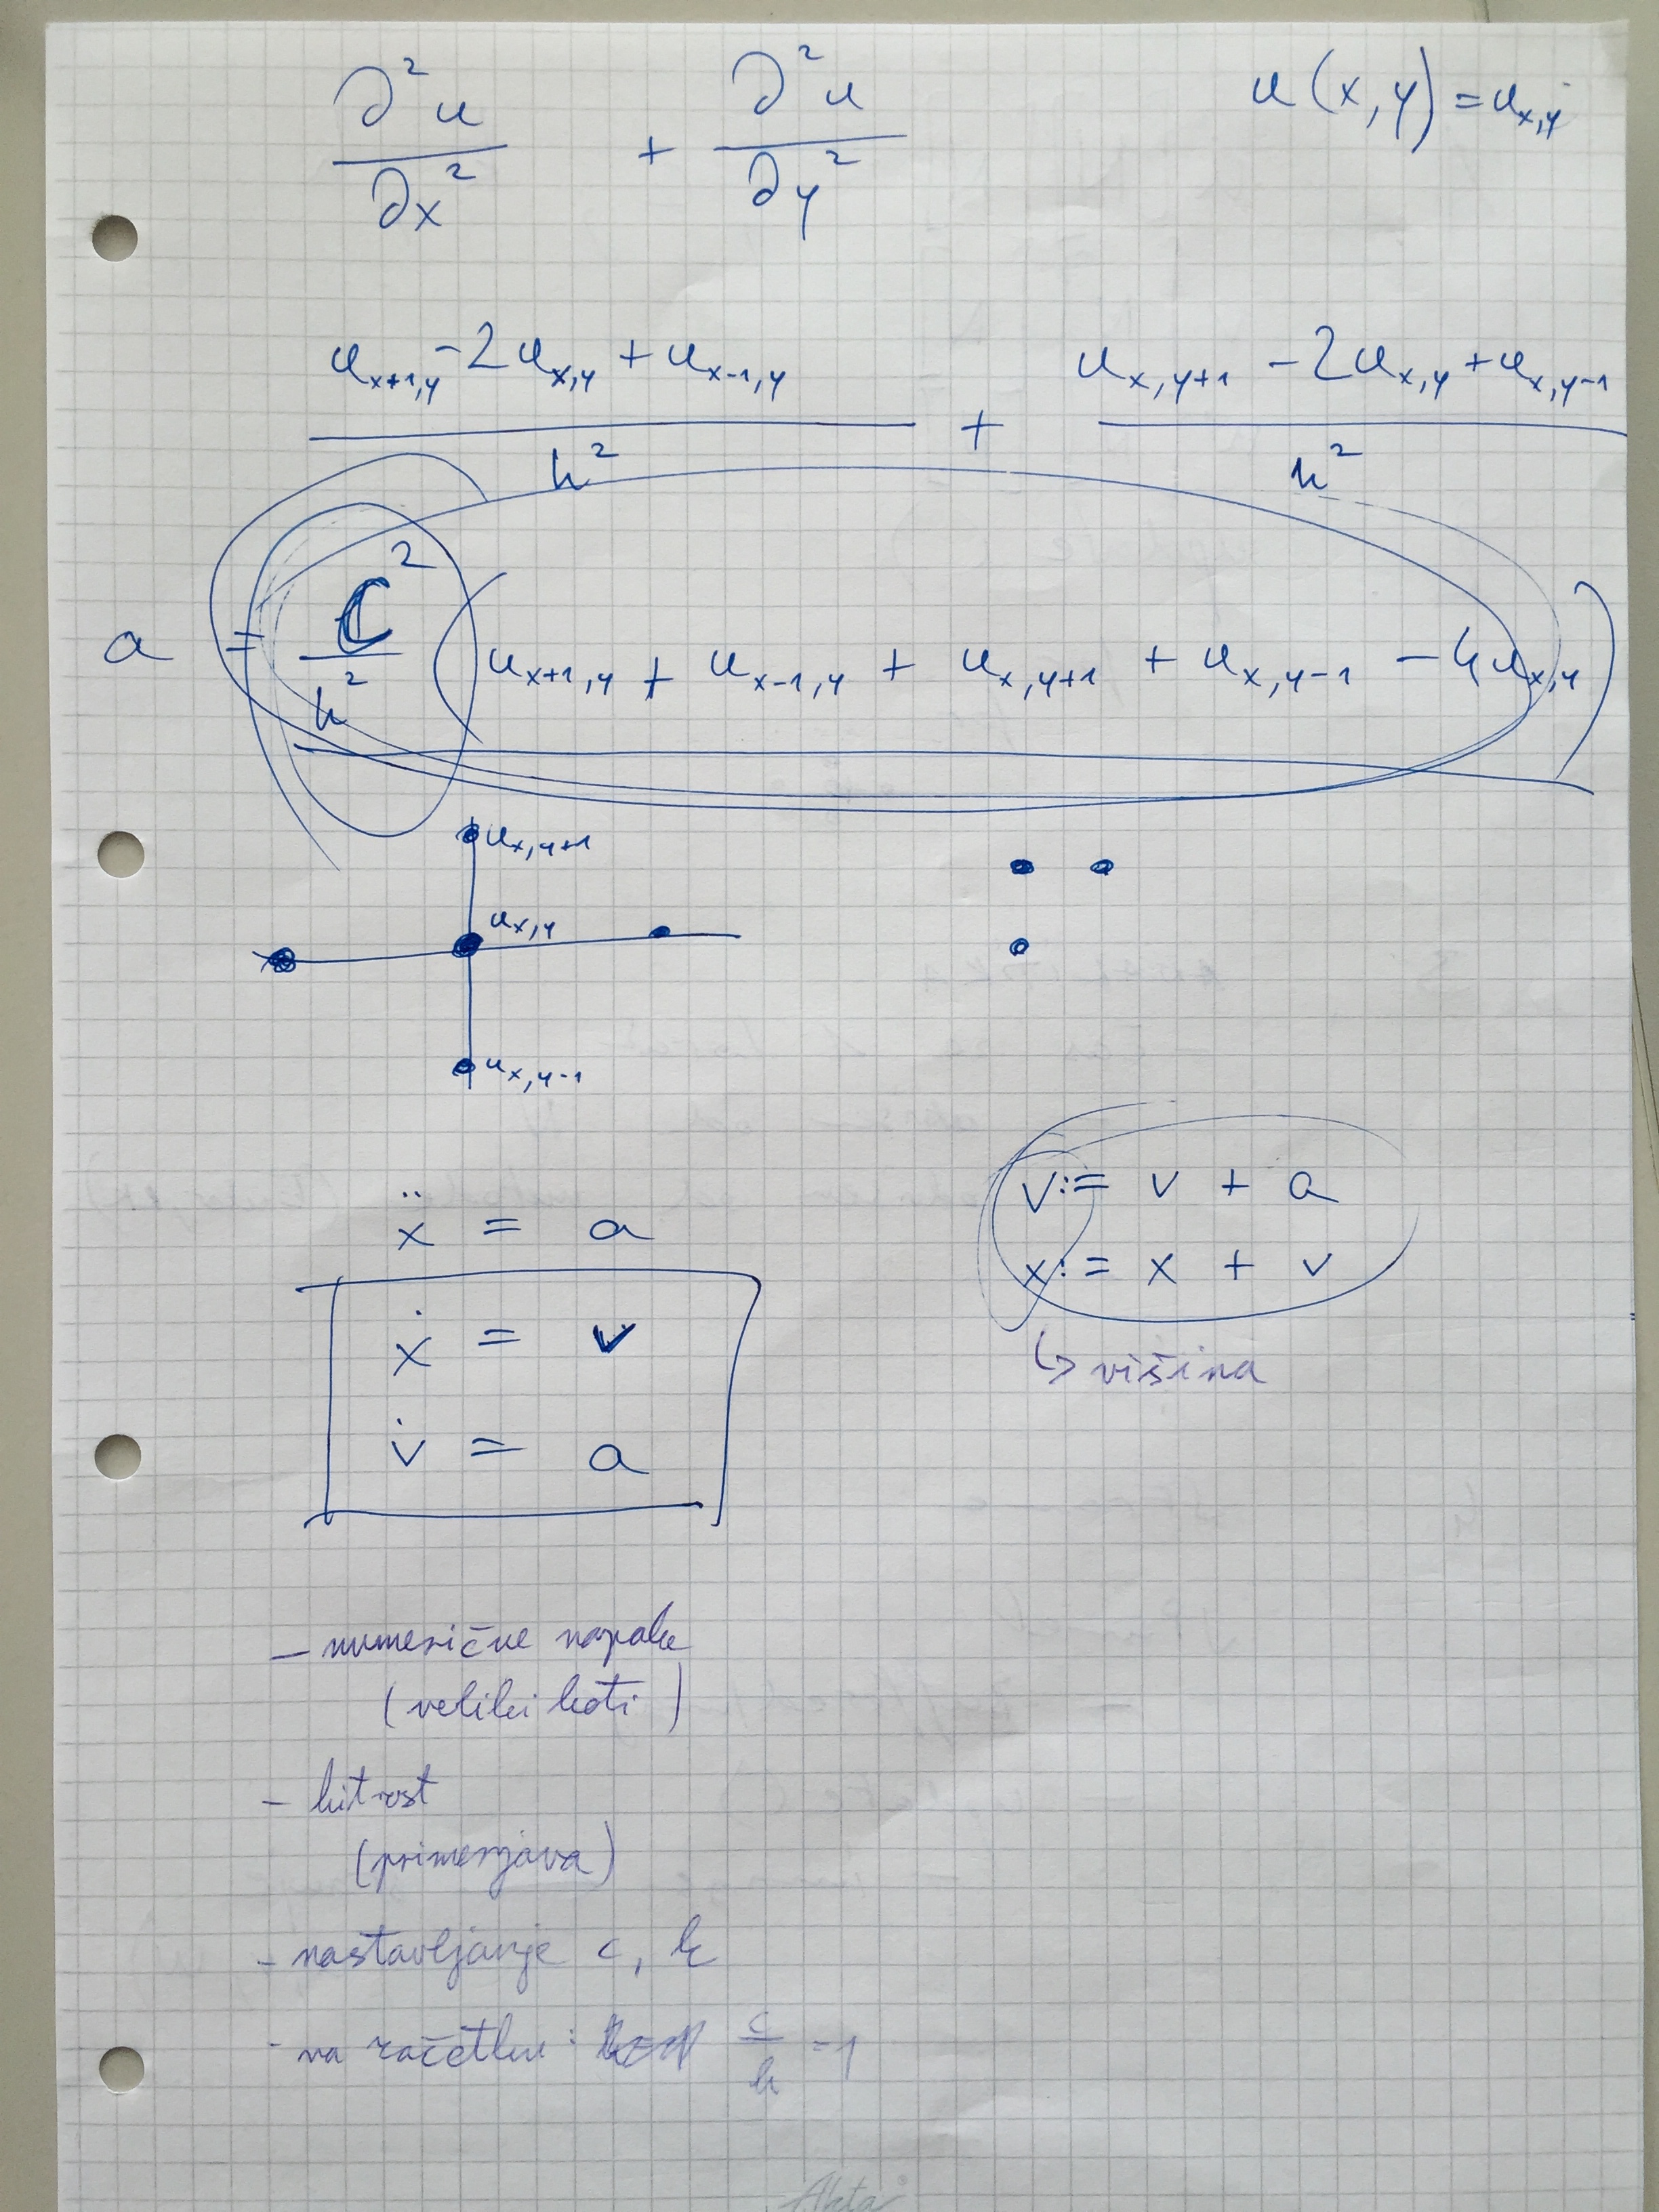 ∂²u/∂x² + ∂²u/∂y²
u(x,y) = u_{x,y}
(u_{x+1,y} - 2u_{x,y} + u_{x-1,y})/h² + (u_{x,y+1} - 2u_{x,y} + u_{x,y-1})/h²
a = c²/h² (u_{x+1,y} + u_{x-1,y} + u_{x,y+1} + u_{x,y-1} - 4u_{x,y})
u_{x,y+1}
u_{x,y}
u_{x,y-1}
ẍ = a
ẋ = v
v̇ = a
v := v + a
x := x + v
↳ višina
- numerične napake
(veliki koti)
- hitrost
(primerjava)
- nastavljanje c, h
- na začetku: c/h = 1
Akta